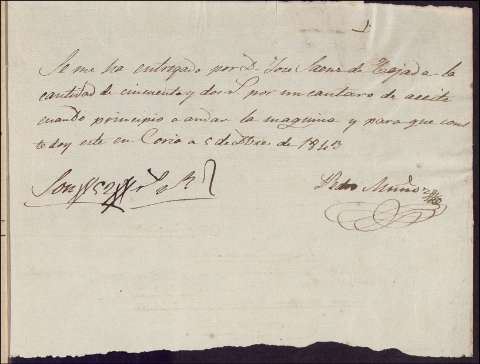 Se me ha entregado por Dn. Jose Saenz de Tejada la
cantidad de cincuenta y dos r.s por un cantaro de aceite
cuando principio a andar la maquina y para que cons
te doy este en Coria a 5 de Dbre. de 1843
Son 52 rs.
Pedro Muñoz